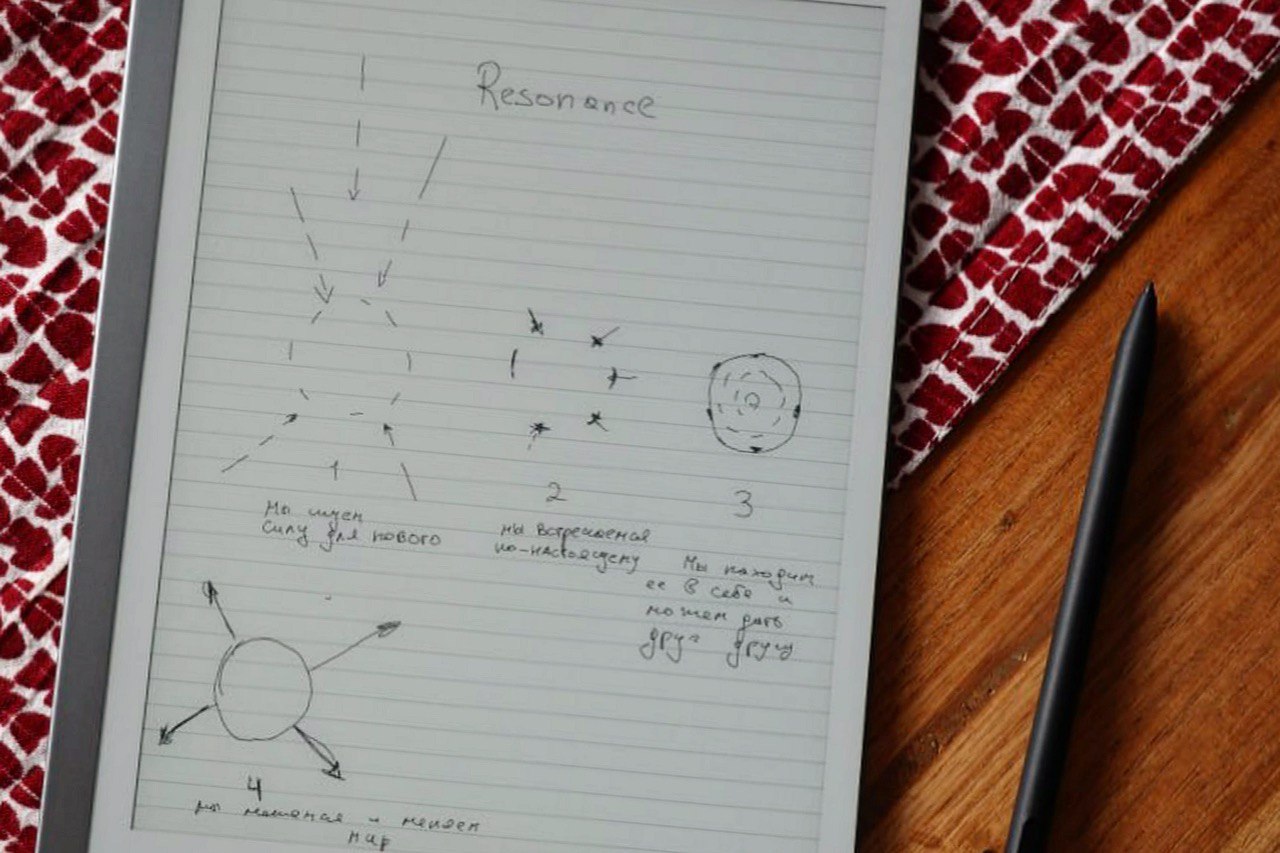 Resonance
1
Мы ищем
силу для нового
2
мы встречаемся
по-настоящему
3
Мы находим
ее в себе и
можем дать
друг другу
4
мы меняемся и меняем
мир